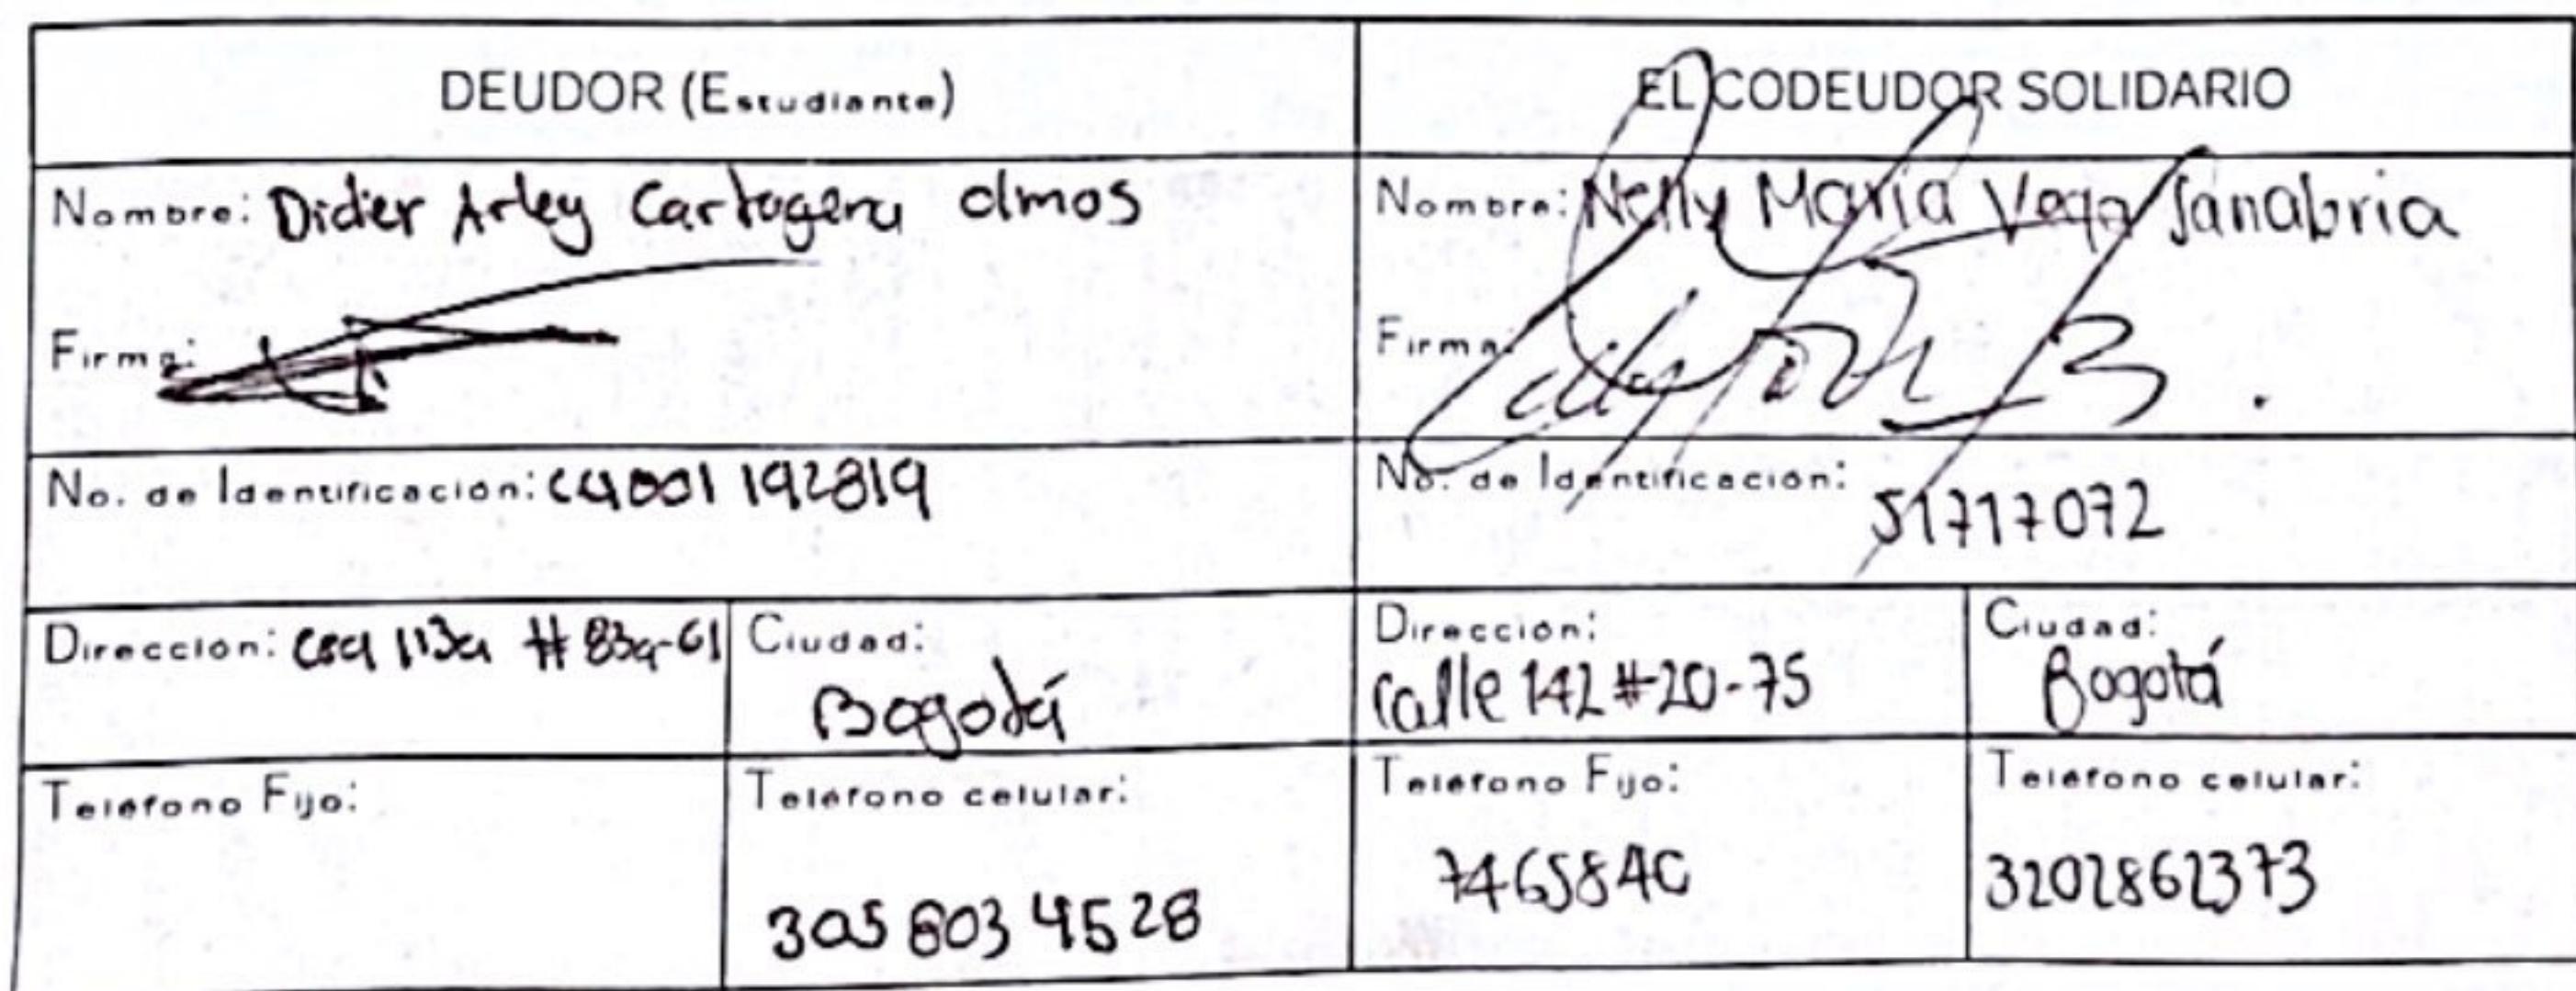 DEUDOR (Estudiante)
EL CODEUDOR SOLIDARIO
Nombre: Didier Arley Cartagena olmos
Nombre: Nelly Maria Vega Sanabria
Firma:
Firma:
No. de Identificación: 1001192819
No. de Identificación:
51717072
Dirección: cra 113a # 83a-61
Ciudad:
Bogotá
Dirección:
calle 142 #20-75
Ciudad:
Bogotá
Teléfono Fijo:
Teléfono celular:
305 803 4528
Teléfono Fijo:
Teléfono celular:
3202862373